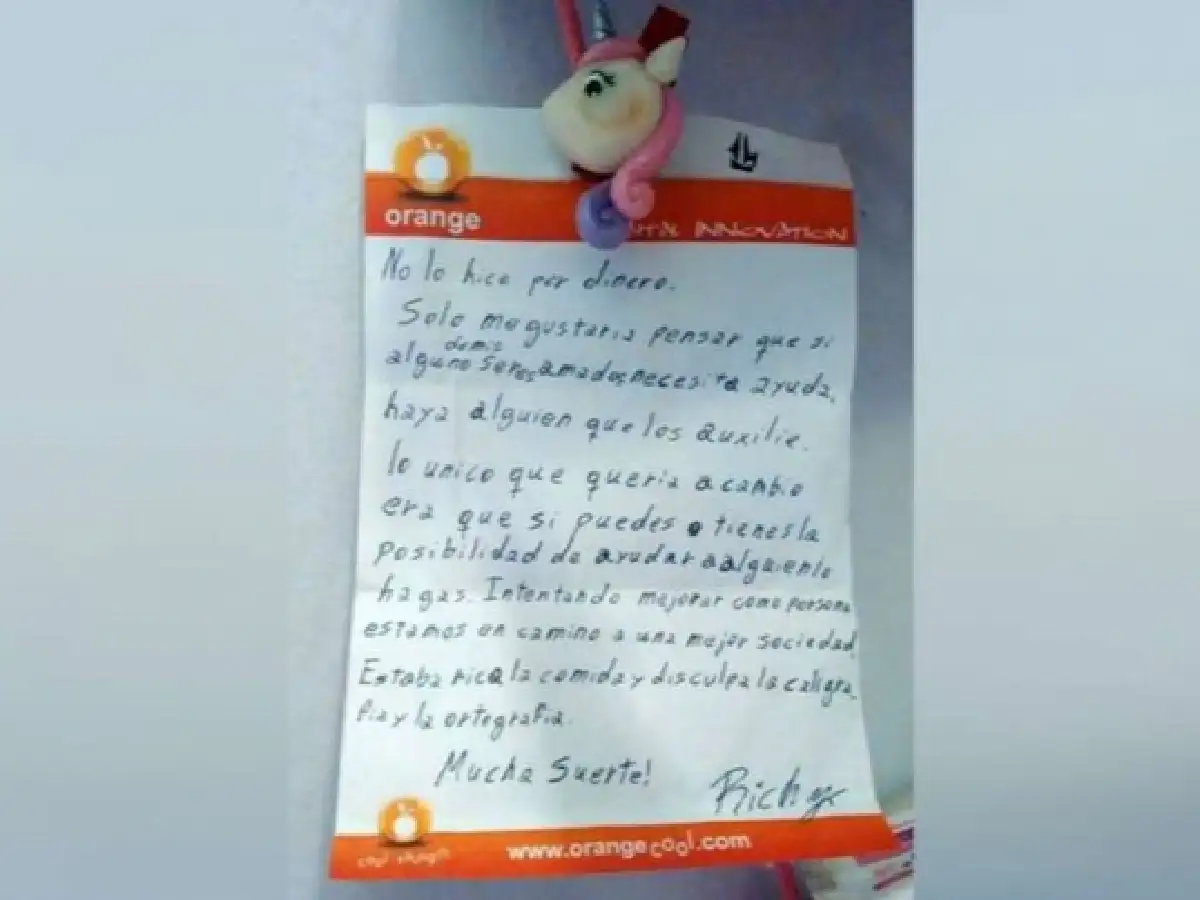 orange
INNOVATION
No lo hice por dinero.
Solo me gustaria pensar que si
de mis
alguno seres amados necesita ayuda,
haya alguien que los auxilie.
lo unico que queria a cambio
era que si puedes o tienes la
posibilidad de ayudar a alguien lo
hagas. Intentando mejorar como persona
estamos en camino a una mejor sociedad.
Estaba rica la comida y disculpa la caligra
fia y la ortografia.
Mucha Suerte!
Richy
www.orangecool.com